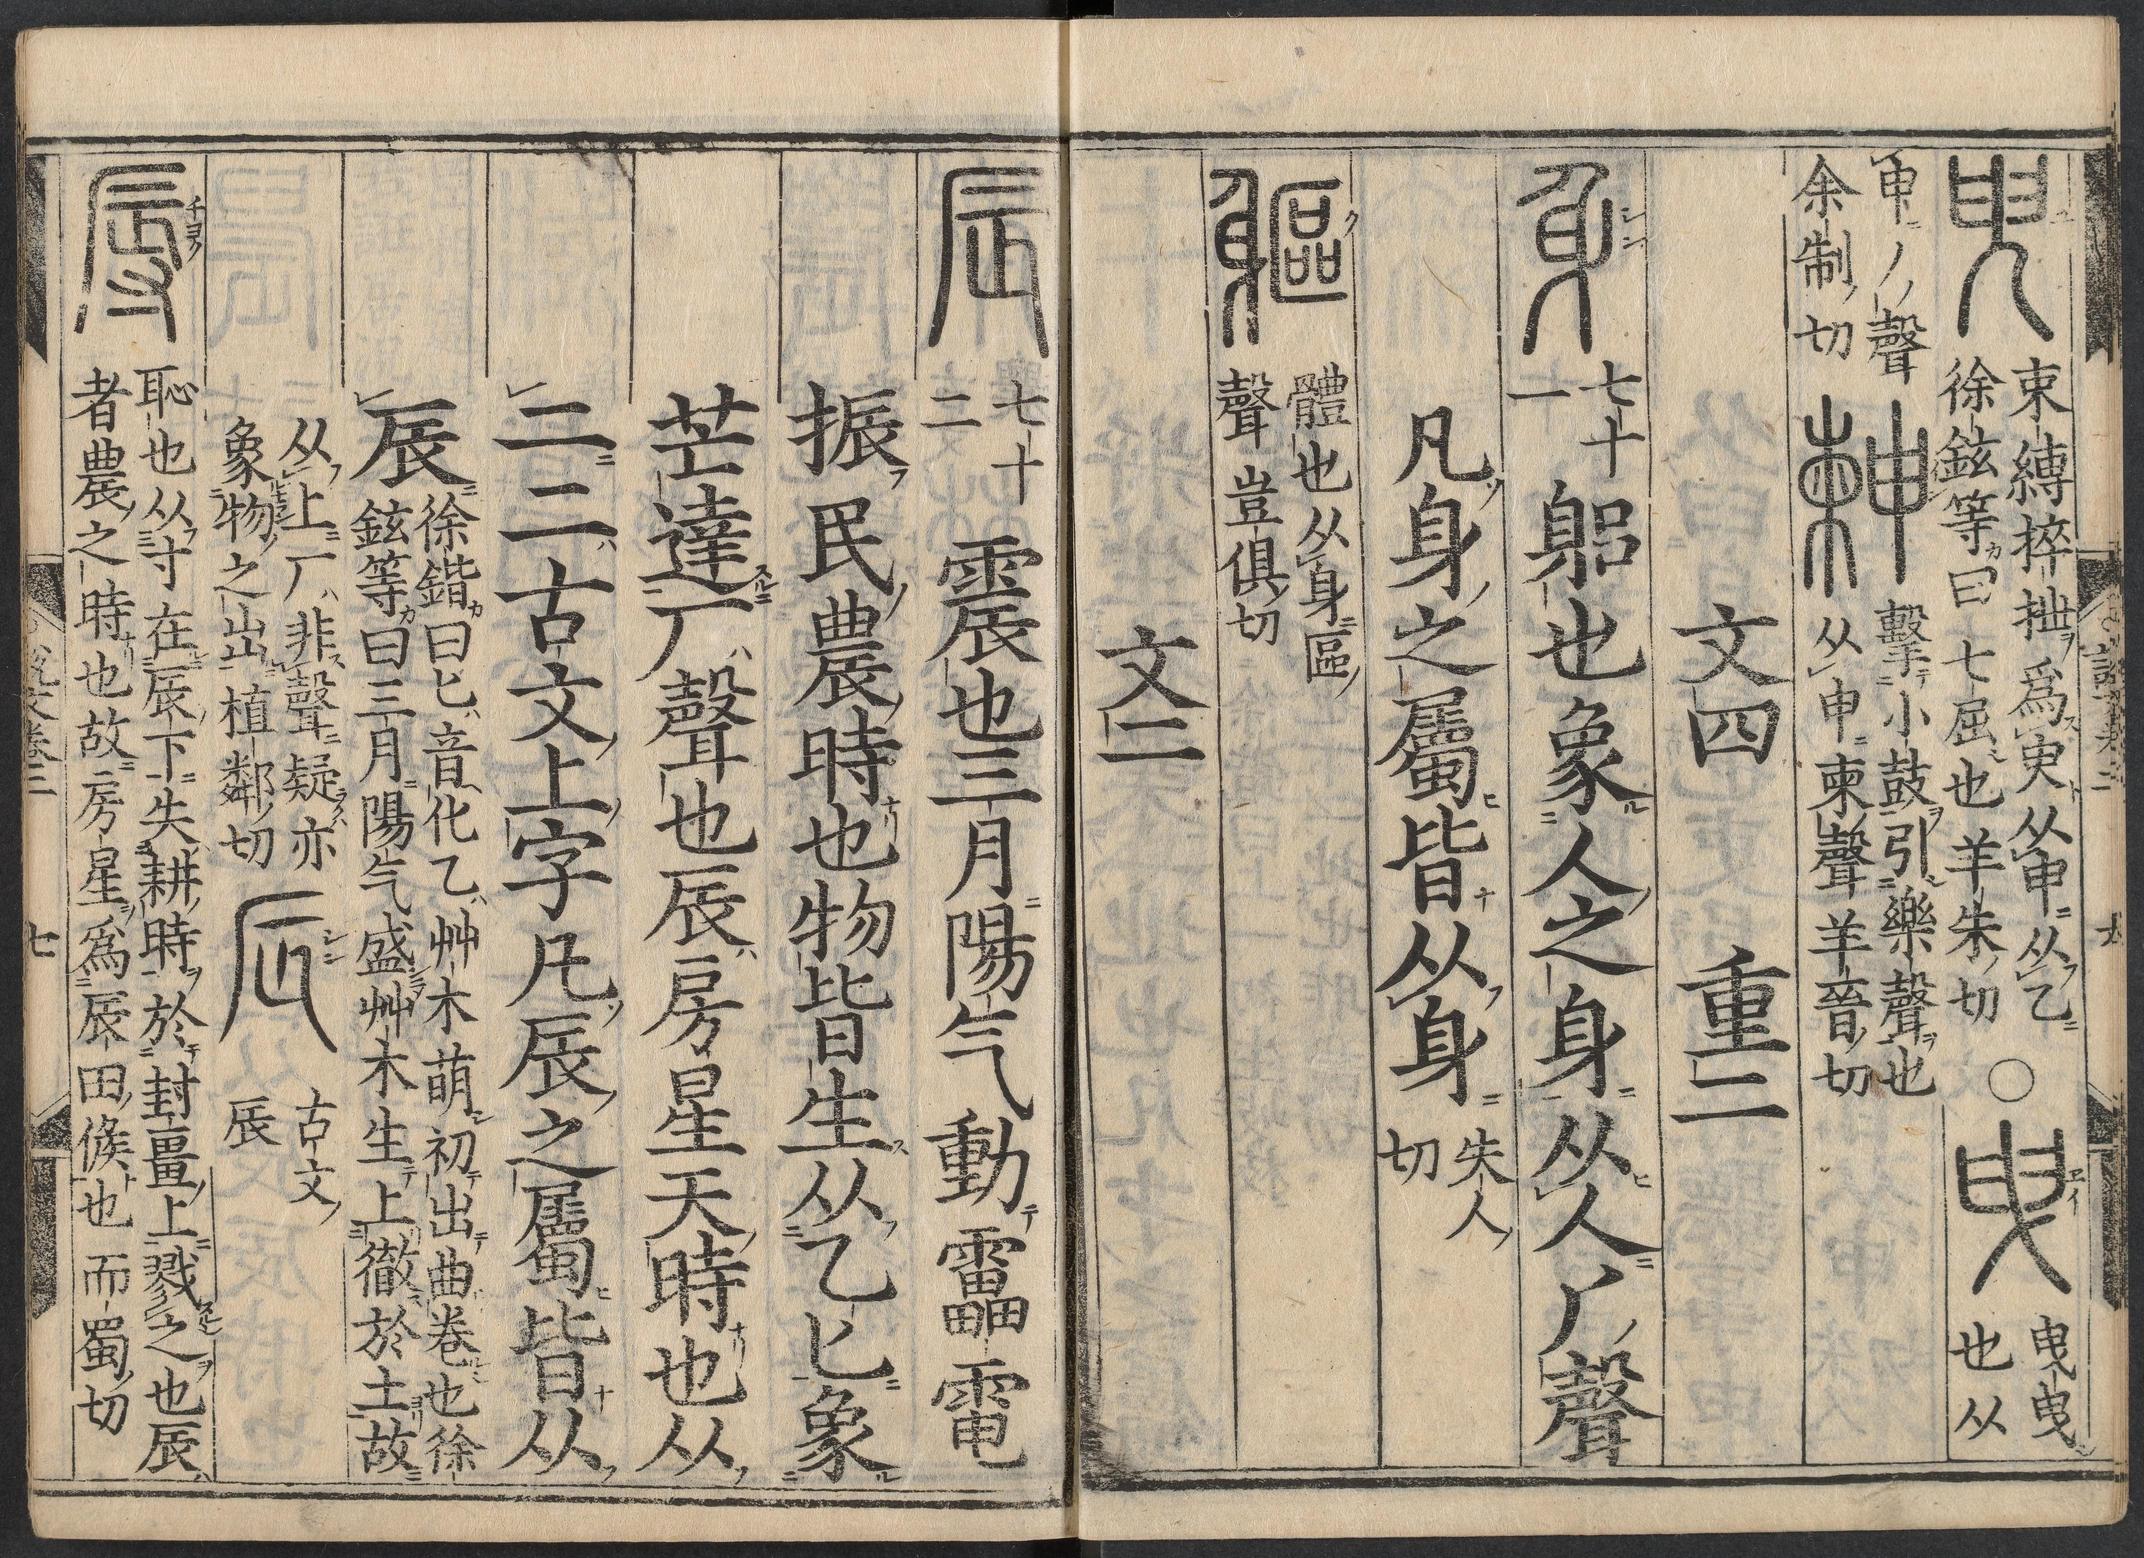 臾 束縛捽抴爲臾从申从乙
徐鉉等曰七屈也羊朱切
○ 曳 曳曳
也从
申丿聲
余制切
𣌾 擊小鼓引樂聲也
从申柬聲羊晉切
文四 重二
身 七十
一
躳也象人之身从人厂聲
凡身之屬皆从身 失人
切
軀 體也从身區
聲豈俱切
文二
辰 七十
二
震也三月陽气動靁電
振民農時也物皆生从乙匕象
芒達厂聲也辰房星天時也从
二二古文上字凡辰之屬皆从
辰 徐鍇曰匕音化乙艸木萌初出曲卷也徐
鉉等曰三月陽气盛艸木生上徹於土故
从上厂非聲疑亦
象物之出植鄰切
𠨷 古文
辰
辱 恥也从寸在辰下失耕時於封畺上戮之也辰
者農之時也故房星爲辰田候也而蜀切
說文卷三
七